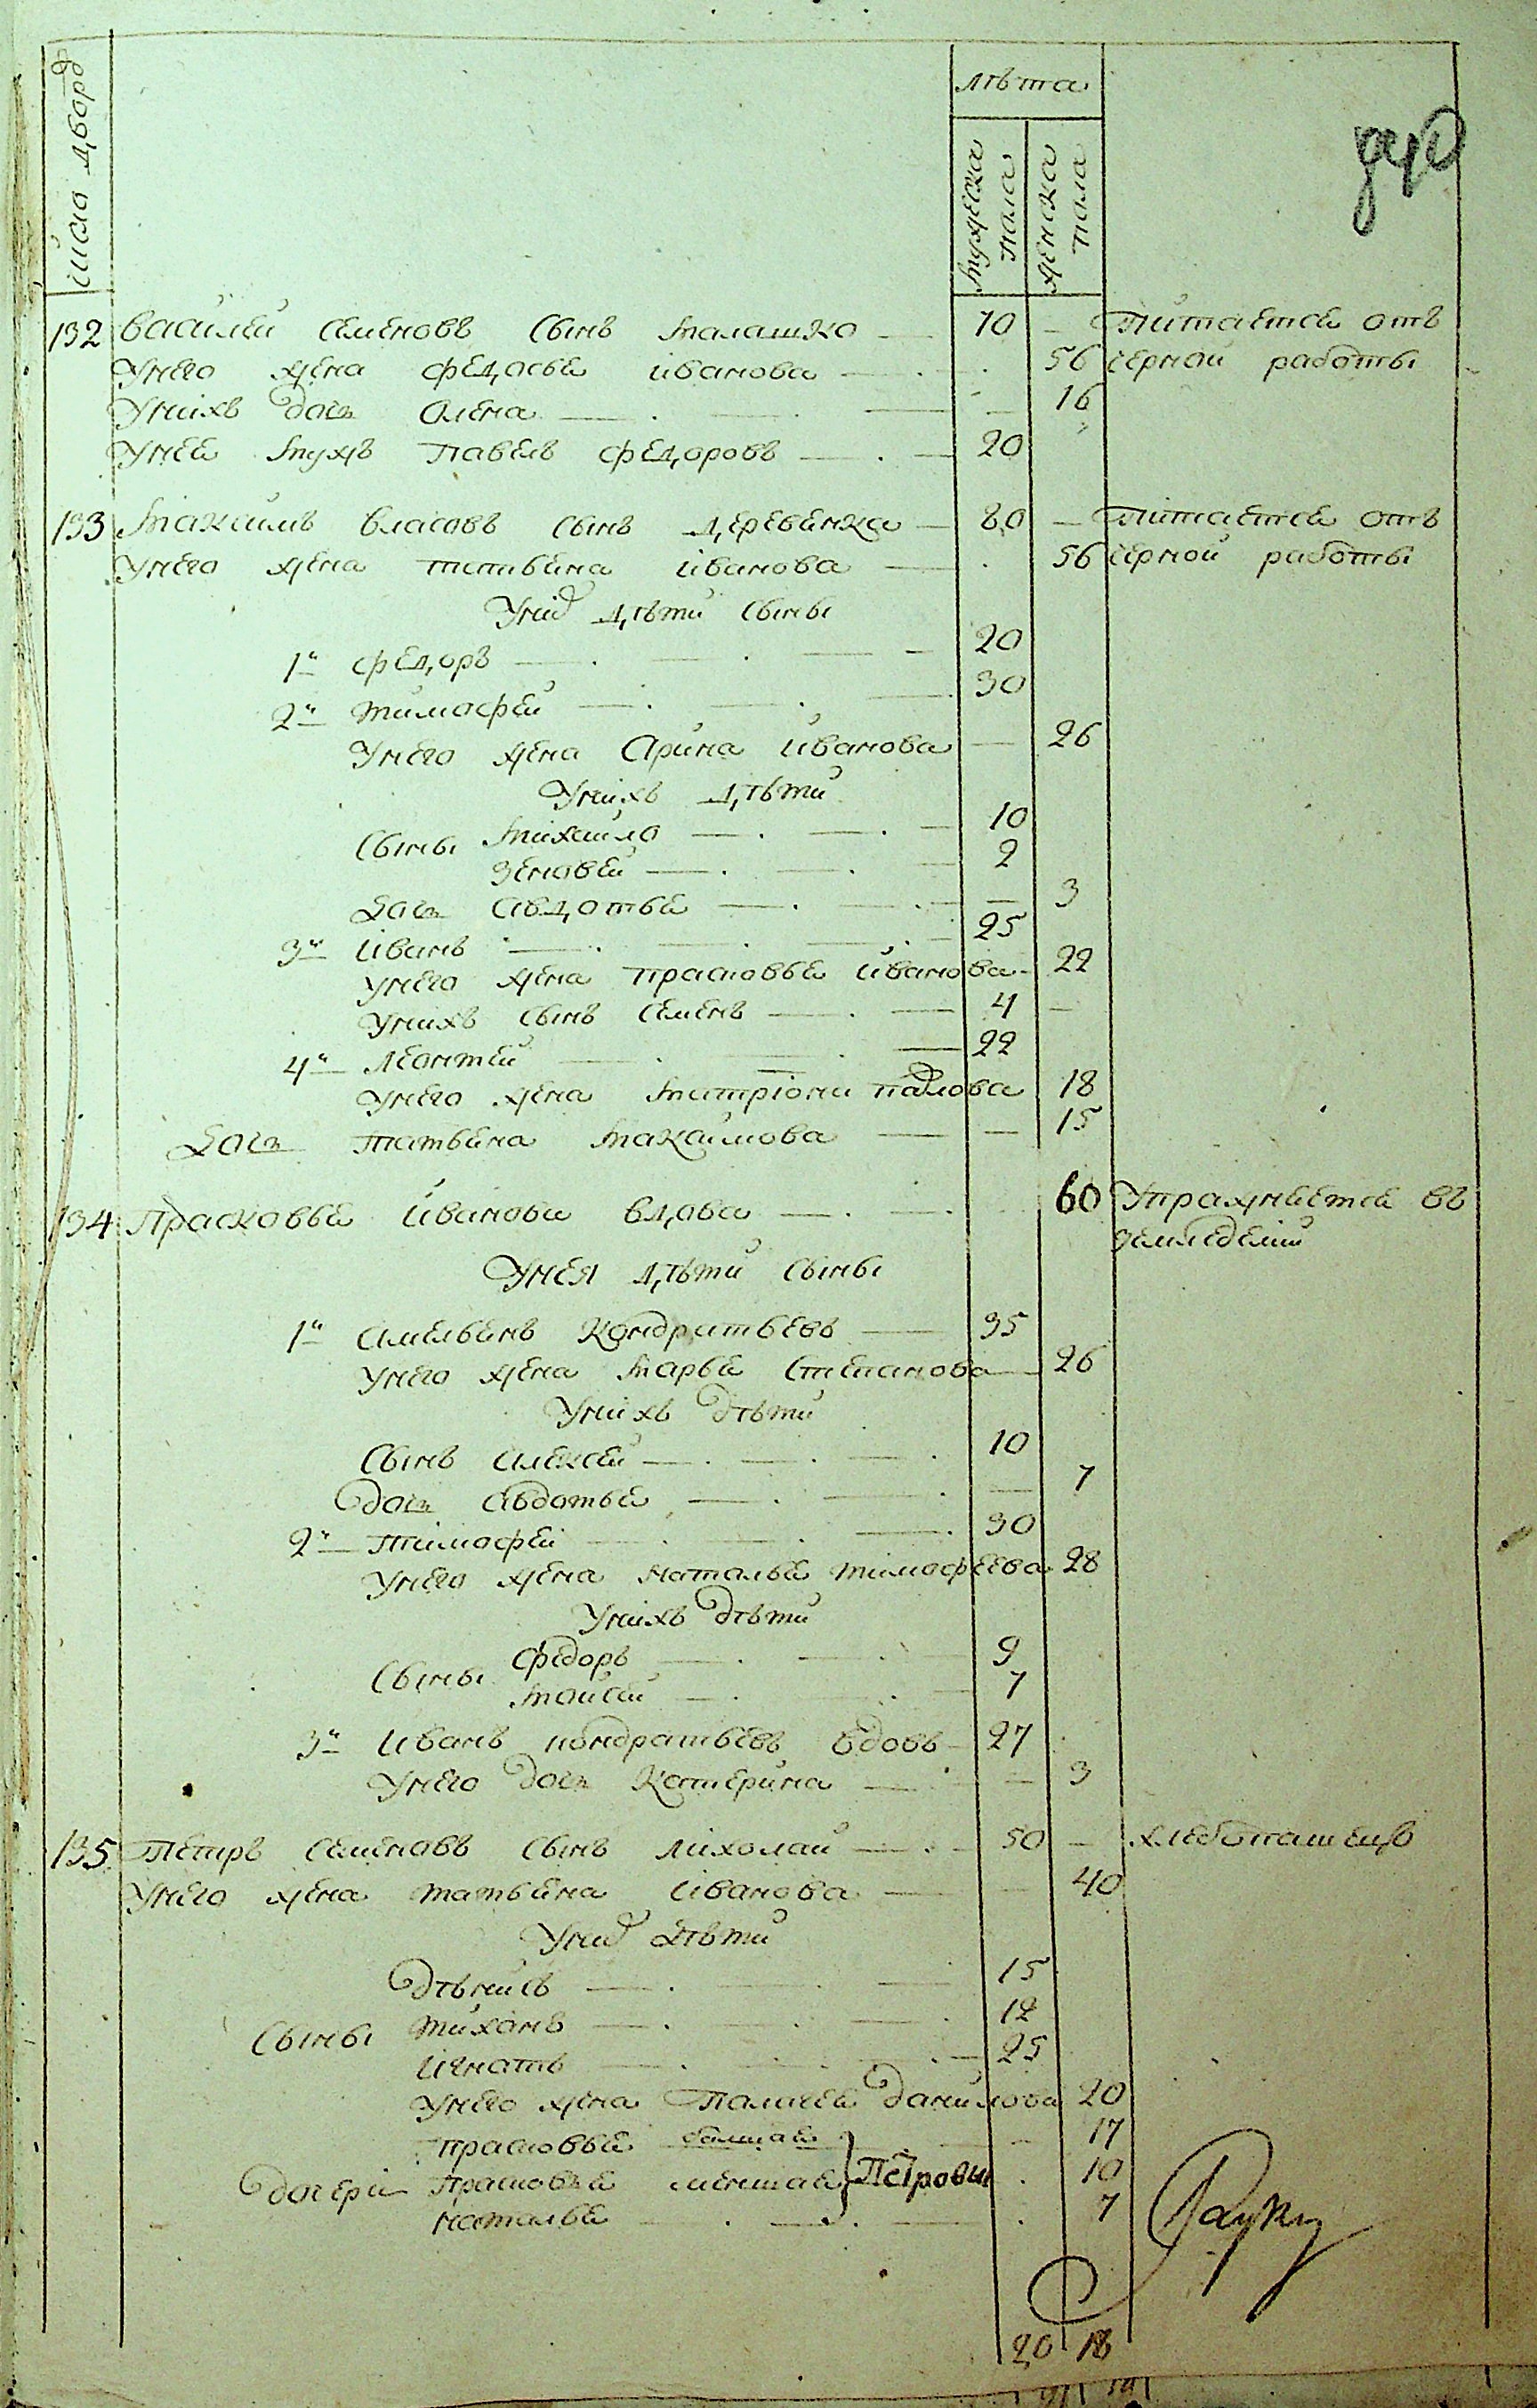 число дворѡ
лѣта
мужеска пола
женска пола
132 Василей Семеновъ сынъ Малашко 70 — питается отъ
Унего жена Федосья иванова 56 черной работы
Унихъ дочь Алена — 16
Унее мужъ Павелъ Федоровъ 20
133 Максимъ Власовъ сынъ деревянка 80 — питается отъ
Унего жена татьяна иванова 56 черной работы
Унихъ дѣти сыны
1й Федоръ 20
2й тимофей 30
Унего жена Арина иванова — 26
Унихъ дѣти
сыны Михайло 10
Зеновей 2
дочь Авдотья — 3
3й иванъ 25
унего жена прасковья иванова 22
Унихъ сынъ Семенъ 4 —
4й Леонтей 22
унего жена матріона павлова 18
дочь татьяна Максимова — 15
134 Прасковья иванова вдова 60 Упражняется въ
земледелии
Унея дѣти сыны
1й Амельянъ Кондратьевъ 35
унего жена Марья Степанова 26
Унихъ дѣти
Сынъ Алексей 10
дочь Авдотья — 7
2й Тимофей 30
Унего жена Наталья тимофеева 28
Унихъ дѣти
Сыны Федоръ 9
Моисей 7
3й иванъ кондратьевъ вдовъ 27
Унего дочь Катерина — 3
135 Петръ Семеновъ сынъ Михолай 50 — хлебопашецъ
Унего жена татьяна иванова — 40
Унихъ дѣти
дѣнисъ 15
Сыны тихонъ 12
игнатъ 25
Унего жена Палагея данилова 20
прасковья болшая 17
дочери прасковья меншая Петровы 10
Наталья 7
20 18